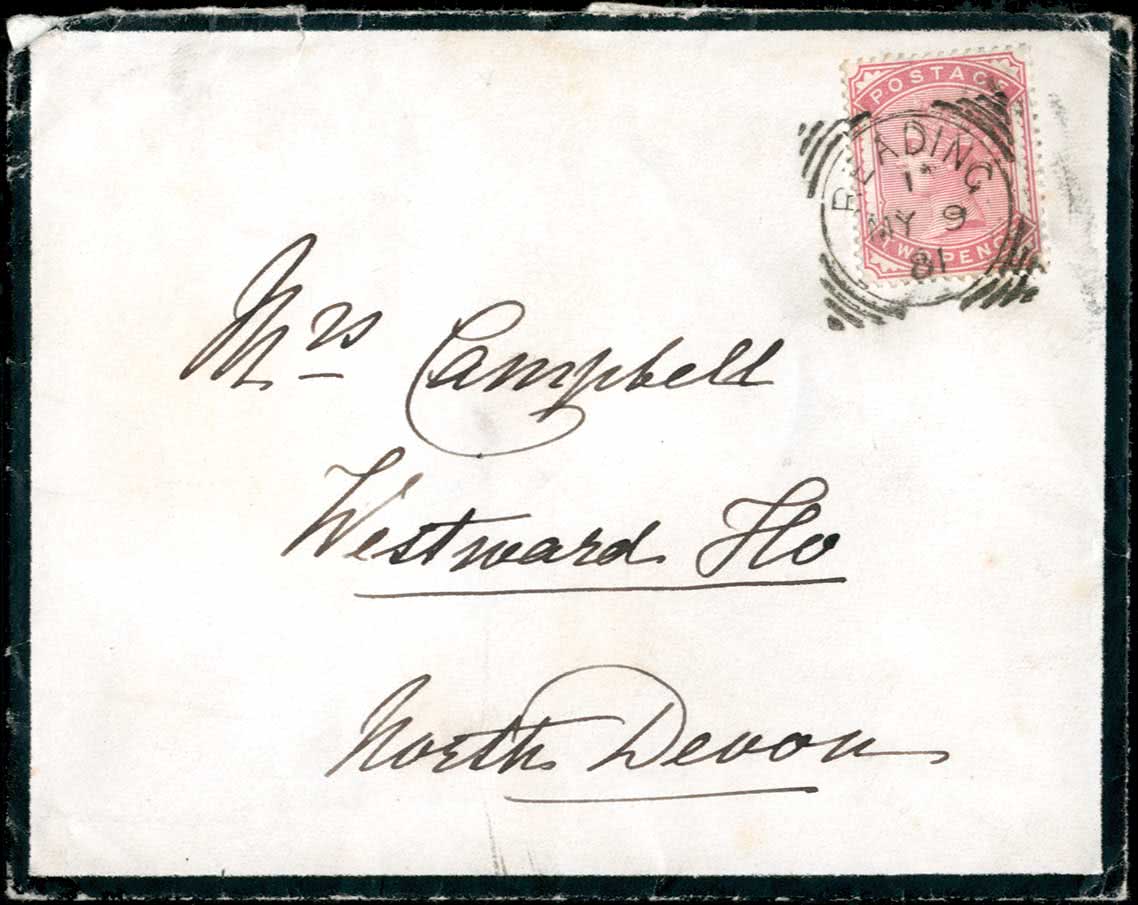 POSTAGE
READING
MY 9
81
TWO PENCE
Mrs Campbell
Westward Ho
North Devon